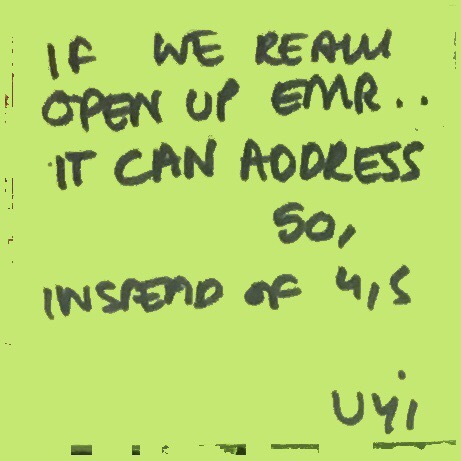 IF WE REALLY
OPEN UP EMR..
IT CAN ADDRESS
50,
INSTEAD OF 4,5
UYI